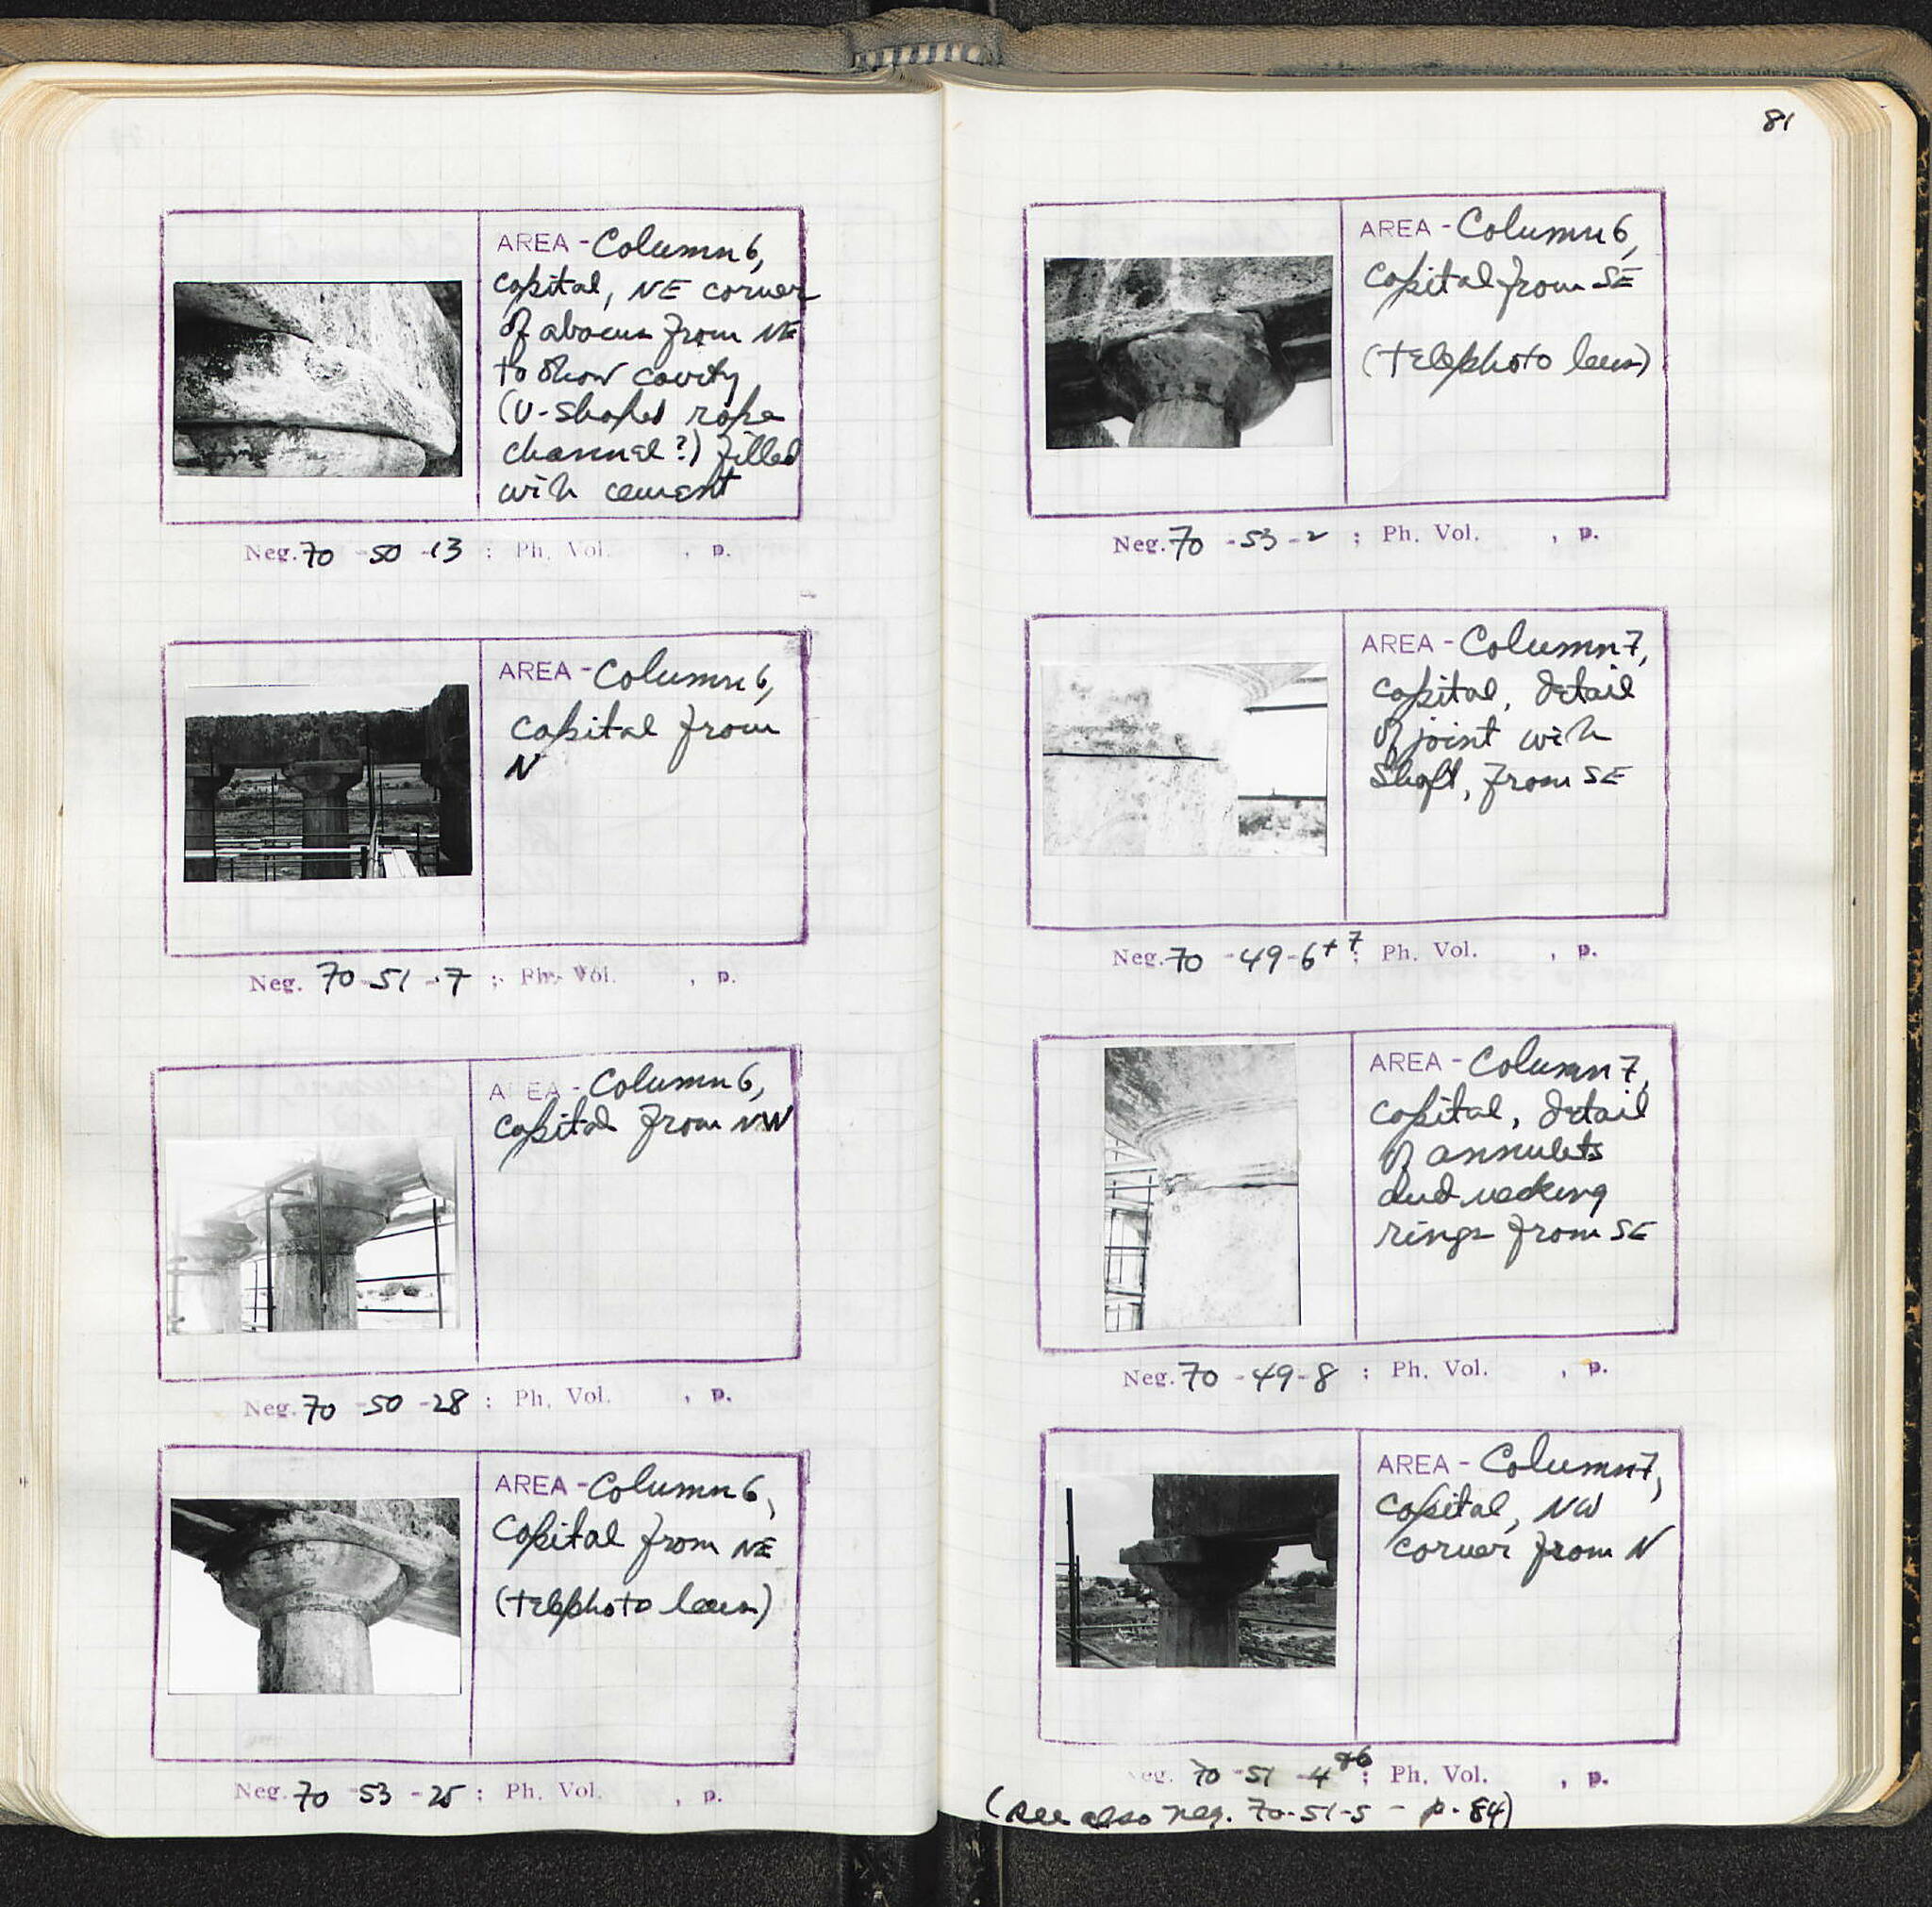 AREA - Column 6,
capital, NE corner
of abacus from NE
to show cavity
(U-shaped rope
channel?) filled
with cement
Neg. 70 - 50 - 13 ; Ph. Vol. , p.
AREA - Column 6,
capital from
N
Neg. 70 - 51 - 7 ; Ph. Vol. , p.
AREA - Column 6,
capital from NW
Neg. 70 - 50 - 28 ; Ph. Vol. , p.
AREA - Column 6,
capital from NE
(telephoto lens)
Neg. 70 - 53 - 25 ; Ph. Vol. , p.
81
AREA - Column 6,
capital from SE
(telephoto lens)
Neg. 70 - 53 - 2 ; Ph. Vol. , p.
AREA - Column 7,
capital, detail
of joint with
shaft, from SE
Neg. 70 - 49 - 6 + 7 ; Ph. Vol. , p.
AREA - Column 7,
capital, detail
of annulets
and necking
rings from SE
Neg. 70 - 49 - 8 ; Ph. Vol. , p.
AREA - Column 7,
capital, NW
corner from N
Neg. 70 - 51 - 4 + 6 ; Ph. Vol. , p.
(see also neg. 70-51-5 - p. 84)